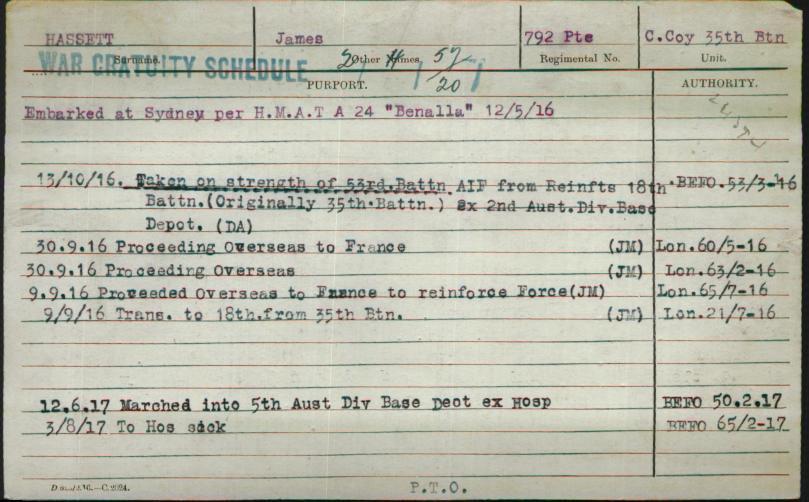 HASSETT James 792 Pte C.Coy 35th Btn
Surname. Other Names. Regimental No. Unit.
WAR GRATUITY SCHEDULE
20
PURPORT. AUTHORITY.
Embarked at Sydney per H.M.A.T A 24 "Benalla" 12/5/16
13/10/16. Taken on strength of 53rd.Battn AIF from Reinfts 18th BEFO.53/3-16
Battn.(Originally 35th.Battn.) ex 2nd Aust.Div.Base
Depot. (DA)
30.9.16 Proceeding Overseas to France (JM) Lon.60/5-16
30.9.16 Proceeding Overseas (JM) Lon.63/2-16
9.9.16 Proveeded Overseas to France to reinforce Force(JM) Lon.65/7-16
9/9/16 Trans. to 18th.from 35th Btn. (JM) Lon.21/7-16
12.6.17 Marched into 5th Aust Div Base Deot ex Hosp BEFO 50.2.17
3/8/17 To Hos sick BEFO 65/2-17
P.T.O.